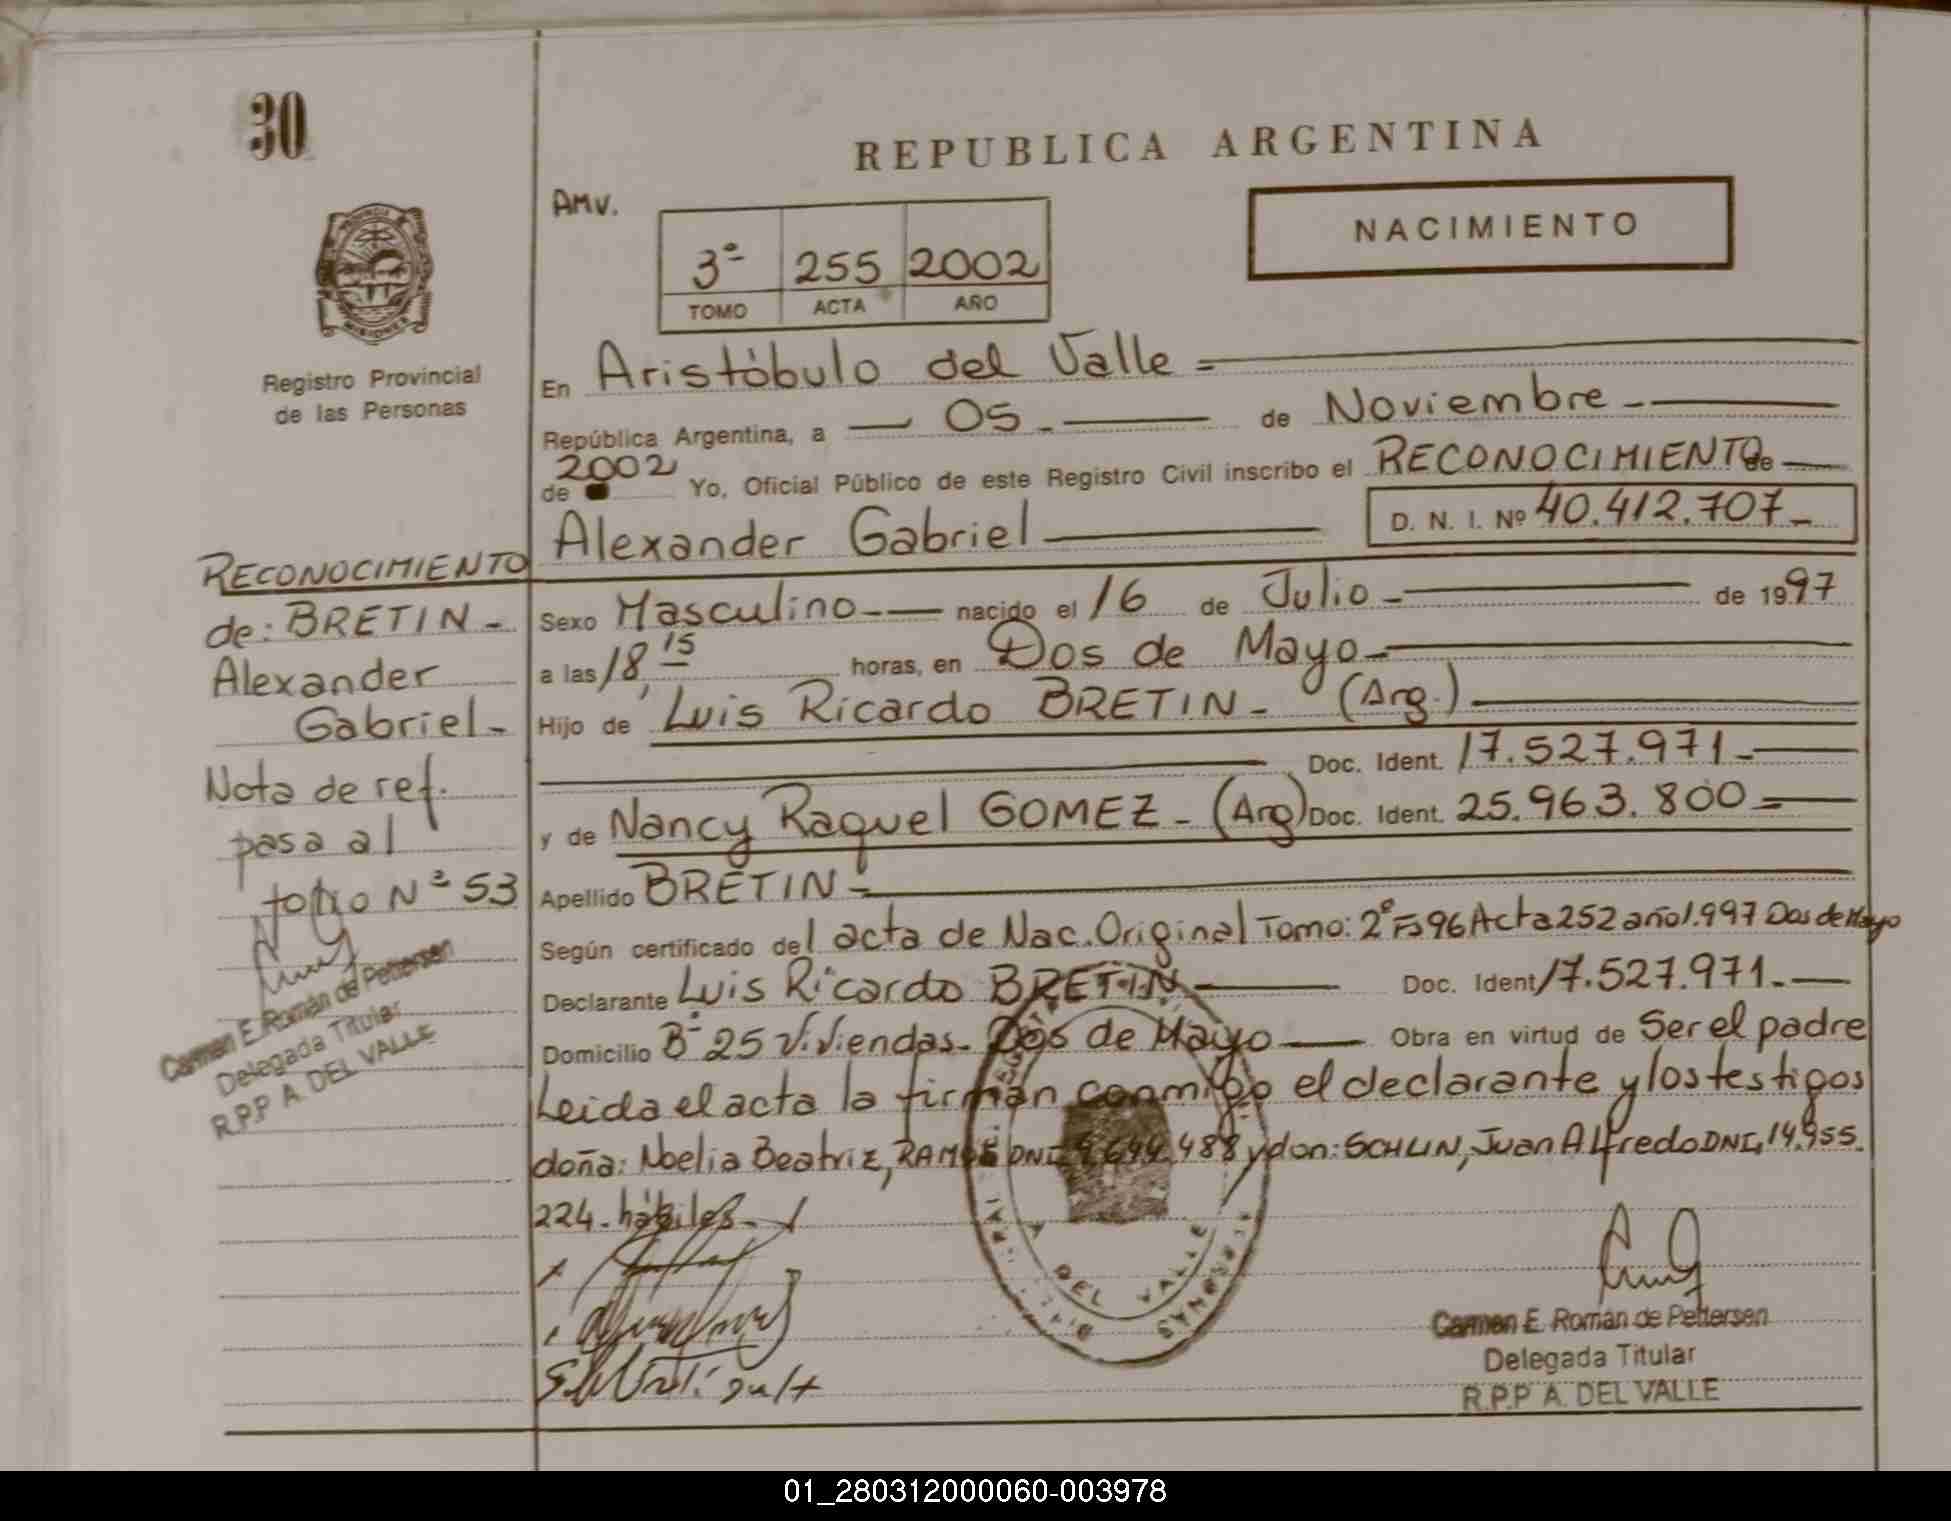 30
REPUBLICA ARGENTINA
AMV.
NACIMIENTO
3º 255 2002
TOMO ACTA AÑO
PROVINCIA DE
MISIONES
Registro Provincial
de las Personas
En Aristóbulo del Valle =
República Argentina, a — 05 - — de Noviembre -
de 2002 Yo, Oficial Público de este Registro Civil inscribo el RECONOCIMIENTO de
Alexander Gabriel — D. N. I. Nº 40.412.707-
RECONOCIMIENTO
de: BRETIN -
Alexander
Gabriel -
Nota de ref.
pasa al
folio Nº 53
Carmen E. Román de Pettersen
Delegada Titular
R.P.P A. DEL VALLE
Sexo Masculino - — nacido el 16 de Julio - — de 1997
a las 18,15 horas, en Dos de Mayo -
Hijo de Luis Ricardo BRETIN - (Arg.)
Doc. Ident. 17.527.971 -
y de Nancy Raquel GOMEZ - (Arg) Doc. Ident. 25.963.800 =
Apellido BRETIN -
Según certificado del acta de Nac. Original Tomo: 2º Fº96 Acta 252 año 1.997 Dos de Mayo
Declarante Luis Ricardo BRETIN — Doc. Ident 17.527.971. -
Domicilio Bº 25 Viviendas - Dos de Mayo — Obra en virtud de Ser el padre
Leida el acta la firman conmigo el declarante y los testigos
doña: Noelia Beatriz, RAMOS DNI 644.488 y don: SCHLIN, Juan Alfredo DNI, 14.955.
224 - hábiles -
DEL VALLE
PERSONAS
Carmen E. Román de Pettersen
Delegada Titular
R.P.P A. DEL VALLE
01_280312000060-003978